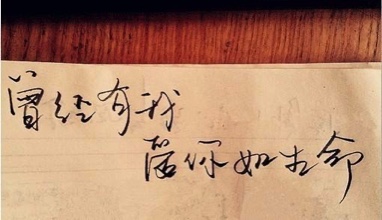 曾经有我
留你如生命